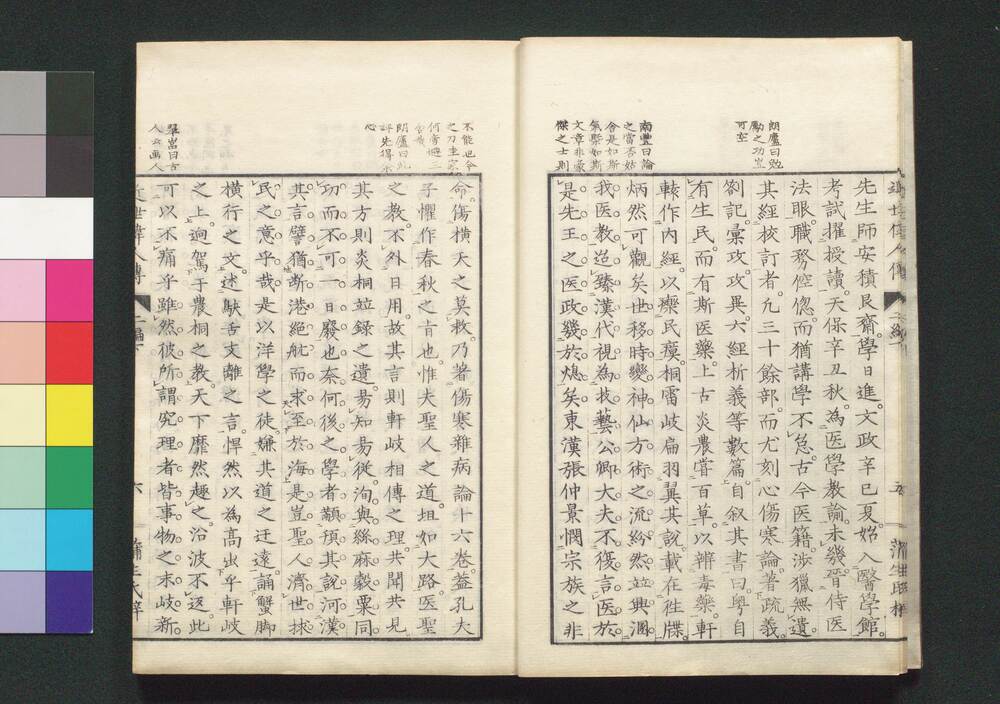 朗廬曰勉
勵之功豈
可空
南豐曰論
之當否姑
舍是如斯
氣槩如斯
文章非豪
傑之士則
先生師安積艮齋學日進文政辛巳夏始入醫學館
考試擢授讀天保辛丑秋為医學教諭未幾晋侍医
法眼職務倥偬而猶講學不怠古今医籍渉獵無遺
其經校訂者凢三十餘部而尤刻心傷寒論著疏義
劄記彙攷攻異六經析義等數篇自叙其書曰粤自
有生民而有斯医藥上古炎農嘗百草以辨毒藥軒
轅作内經以療民瘼桐雷岐扁羽翼其説載在徃牒
炳然可觀矣世移時變神仙方術之流紛然竝興溷
我医教迨臻漢代視為技藝公卿大夫不復言医於
是先王之医政幾於熄矣東漢張仲景憫宗族之非
近世偉人傳
二編
五
蒲生氏梓
不能也今
之刀圭家
何啻避三
舍哉
朗廬曰此
評先得余
心
羣峀曰古
人云萬人
命傷横夭之莫救乃著傷寒雜病論十六卷葢孔夫
子懼作春秋之肯也惟夫聖人之道坦如大路医聖
之教不外日用故其言則軒岐相傳之理共聞共見
其方則炎桐竝録之遺易知易従洵與絲麻穀粟同
功而不可一日廢也奈何後之學者顢頇其説河漢
其言譬猶断港絶航而求至於海是豈聖人濟世捄
民之意乎哉是以洋學之徒嫌其道之迂遠誦蟹脚
横行之文述鴃舌支離之言悍然以為高出乎軒岐
之上逈駕于農桐之教天下靡然趣之沿波不返此
可以不痛乎雖然彼所謂究理者皆事物之末岐新
近世偉人傳
二編
六
蒲生氏梓